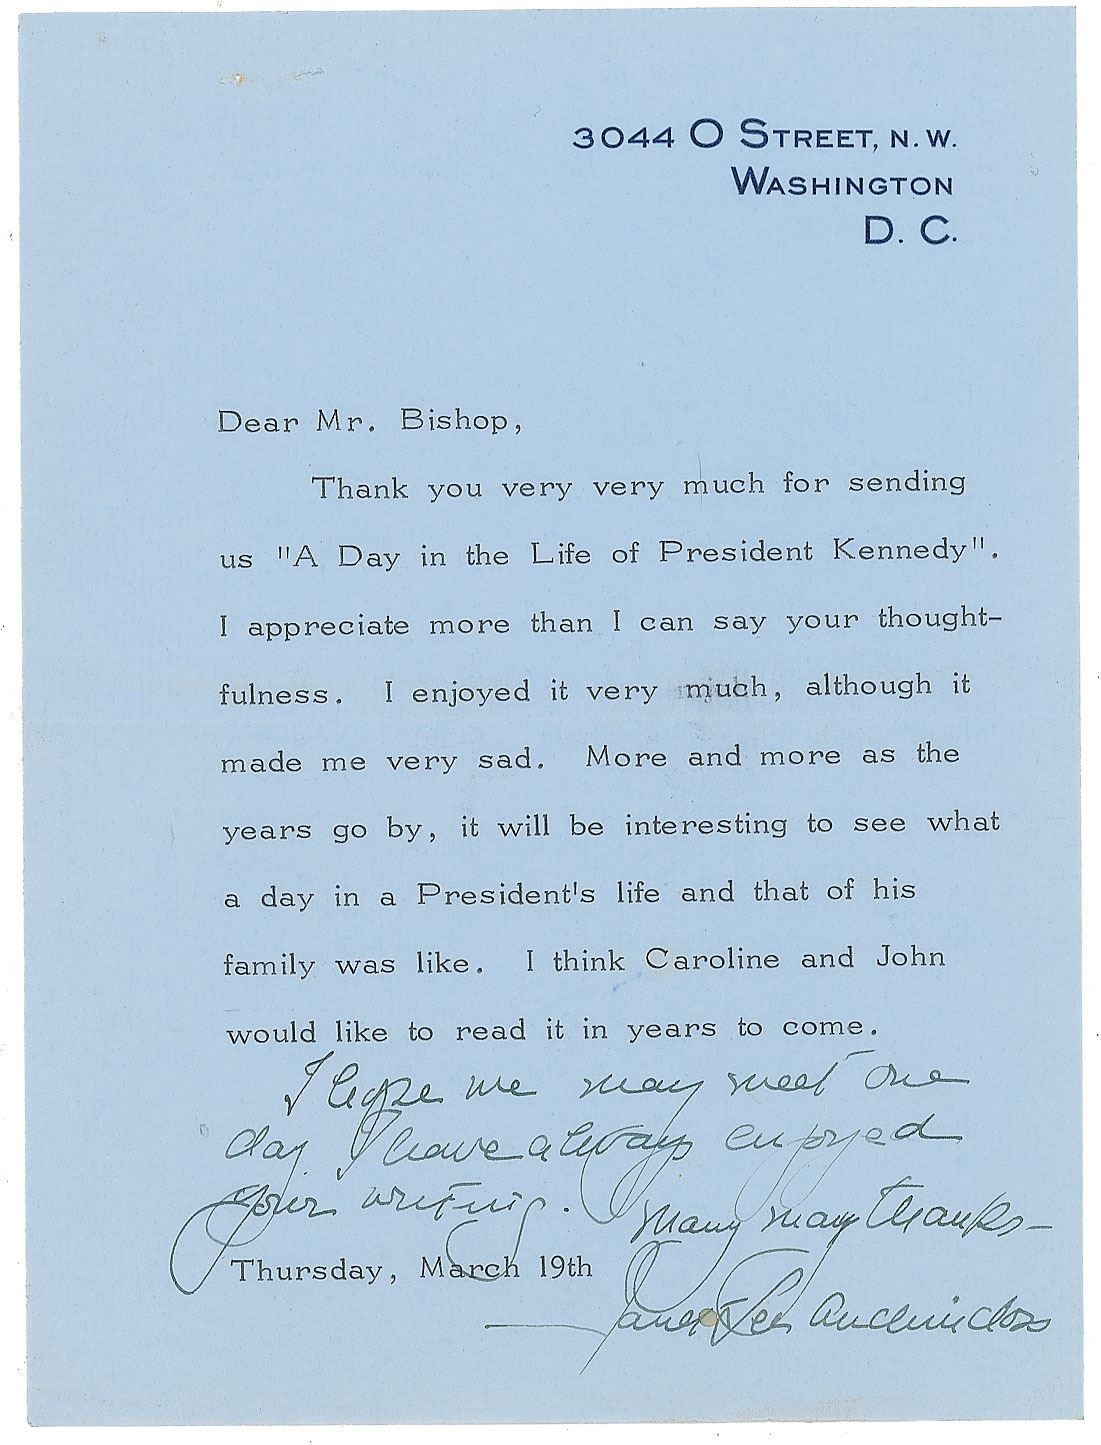 3044 O STREET, N. W.
WASHINGTON
D. C.
Dear Mr. Bishop,
Thank you very very much for sending
us "A Day in the Life of President Kennedy".
I appreciate more than I can say your thought-
fulness. I enjoyed it very much, although it
made me very sad. More and more as the
years go by, it will be interesting to see what
a day in a President's life and that of his
family was like. I think Caroline and John
would like to read it in years to come.
I hope we may meet one
day I have always enjoyed
your writing. Many many thanks—
Thursday, March 19th
Janet Lee Auchincloss